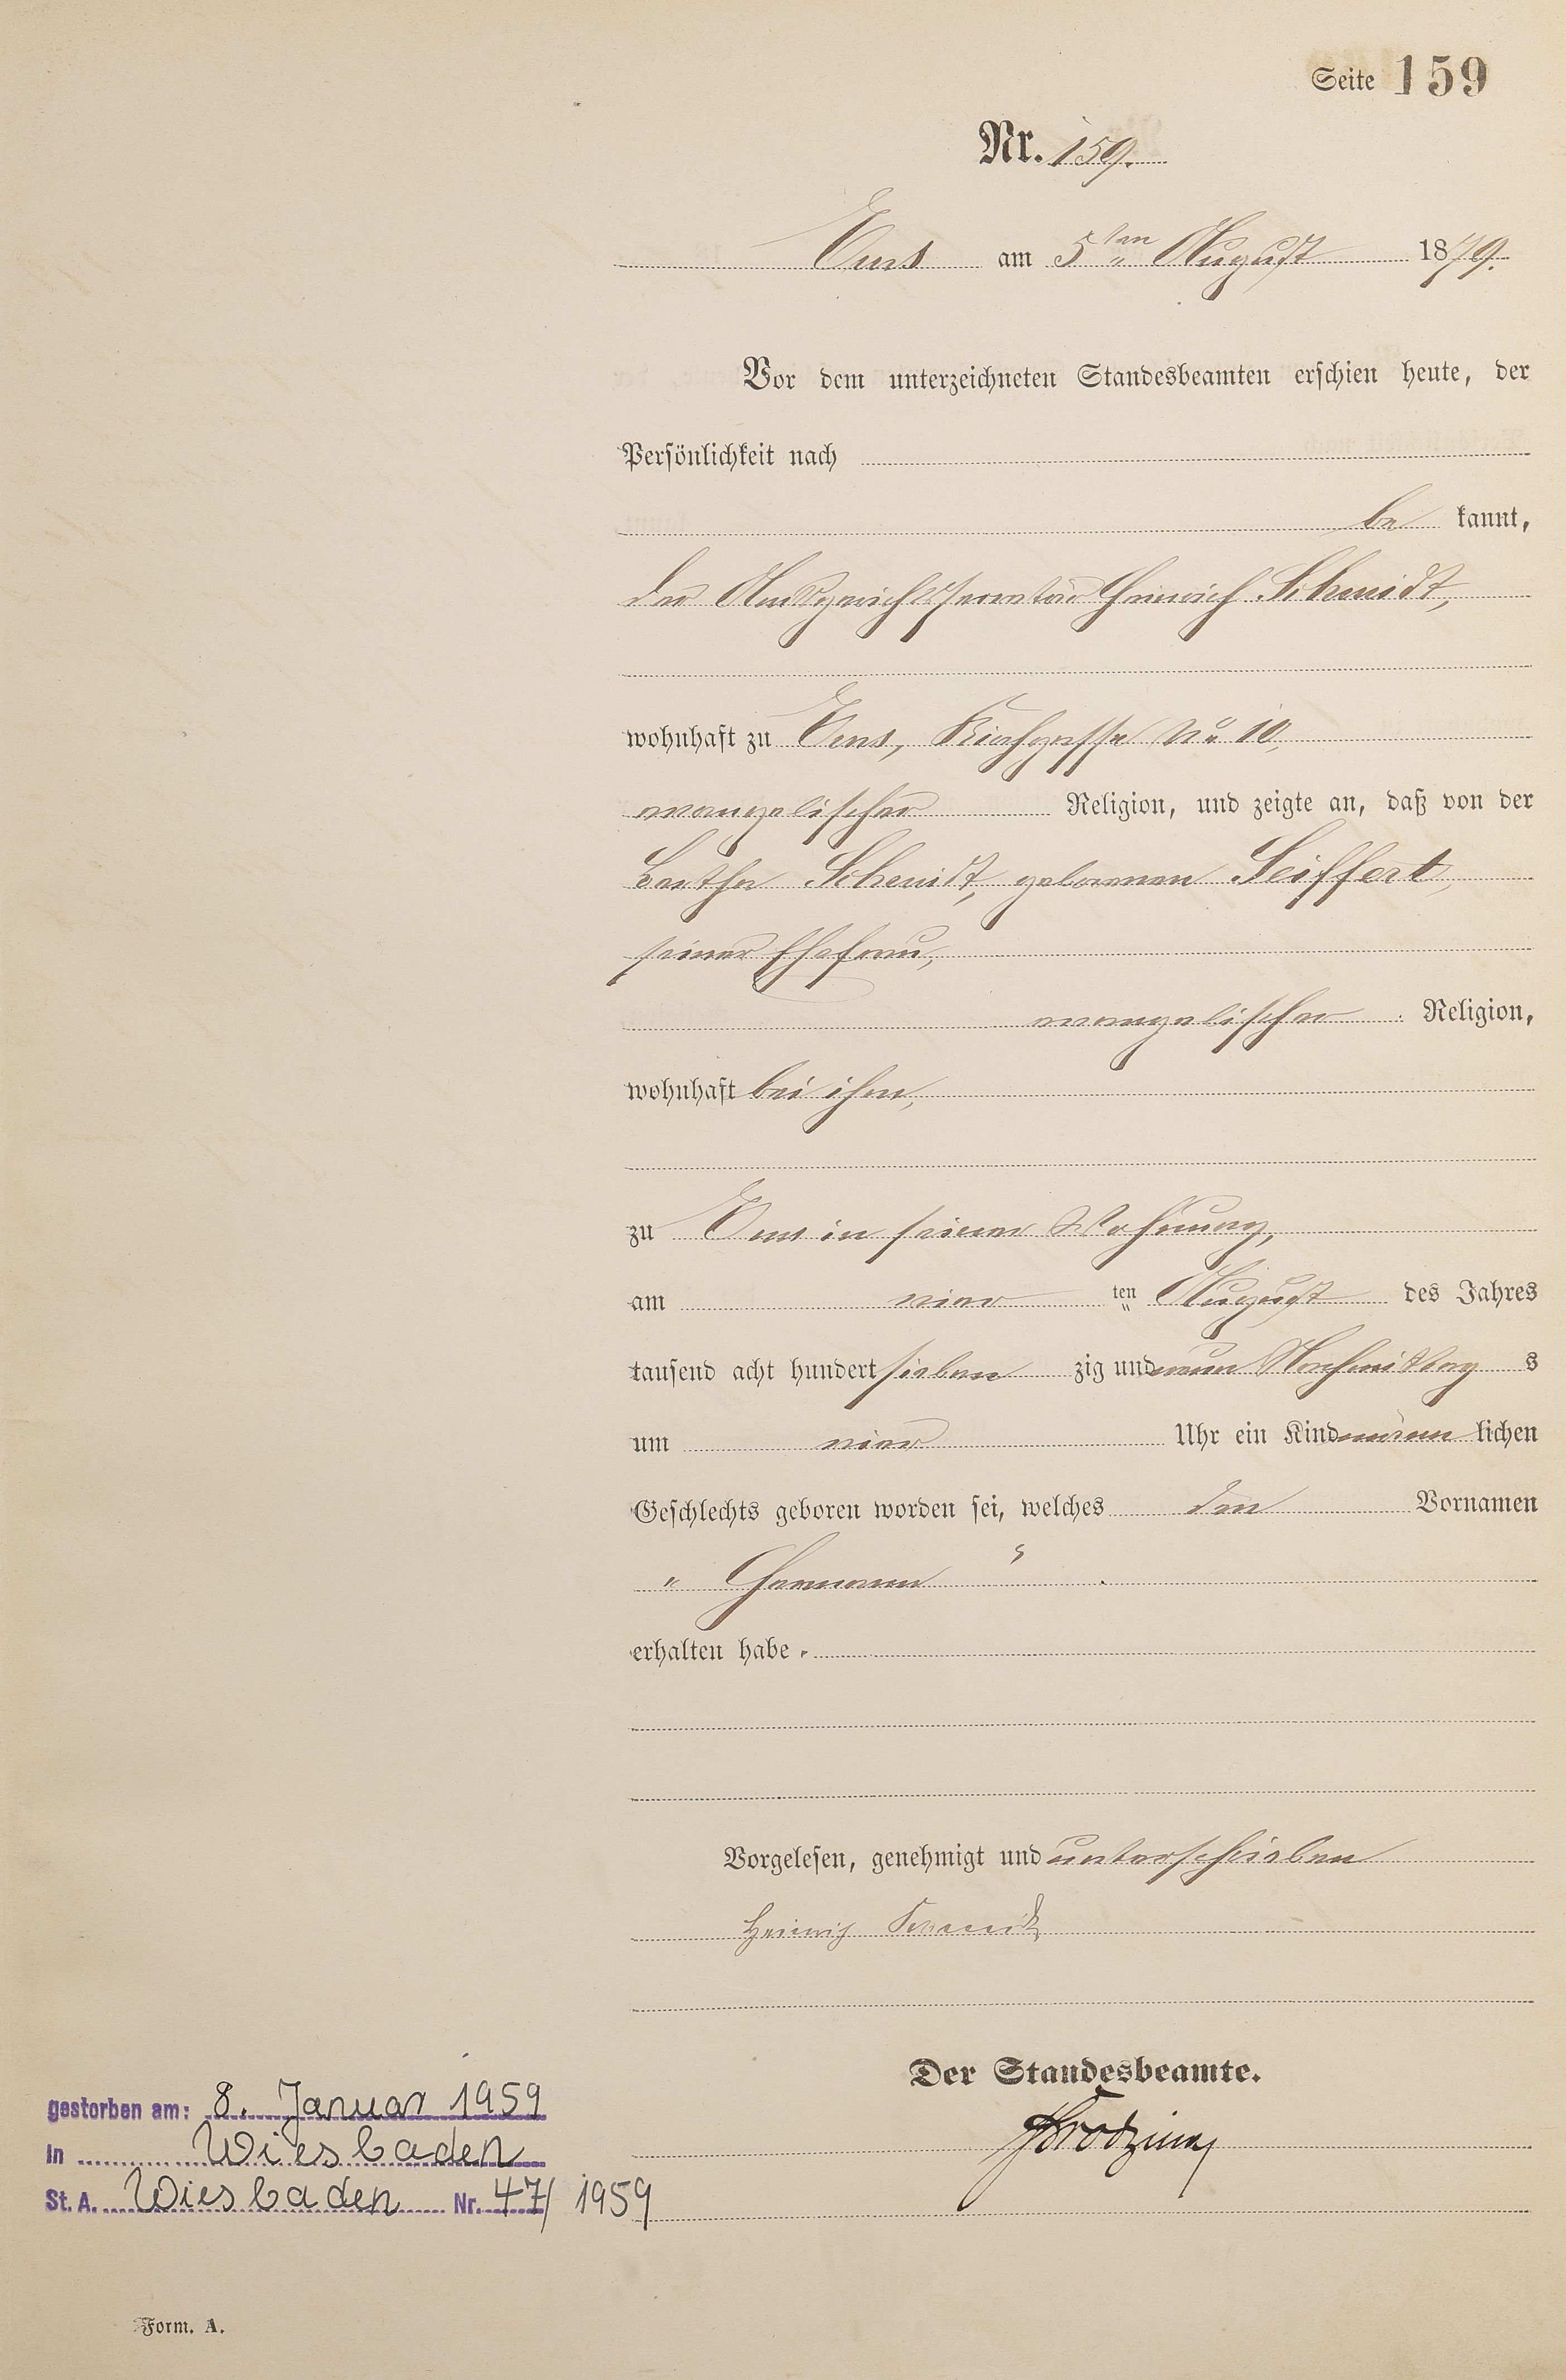 Seite 159
Nr. 159.
Ems am 5ten August 1879.
Vor dem unterzeichneten Standesbeamten erschien heute, der
Persönlichkeit nach
be kannt,
der Amtsgerichtssecretär Heinrich Schmidt,
wohnhaft zu Ems, Kirchgasse No 10,
evangelischer Religion, und zeigte an, daß von der
Bertha Schmidt, geborenen Seiffert,
seiner Ehefrau,
evangelischer Religion,
wohnhaft bei ihm,
zu Ems in seiner Wohnung,
am vier ten August des Jahres
tausend acht hundert sieben zig und neun Nachmittag s
um vier Uhr ein Kind männ lichen
Geschlechts geboren worden sei, welches den Vornamen
„ Hermann "
erhalten habe.
Vorgelesen, genehmigt und unterschrieben
Heinrich Schmidt
Der Standesbeamte.
gestorben am: 8. Januar 1959
in Wiesbaden
St. A. Wiesbaden Nr. 47/1959
Form. A.